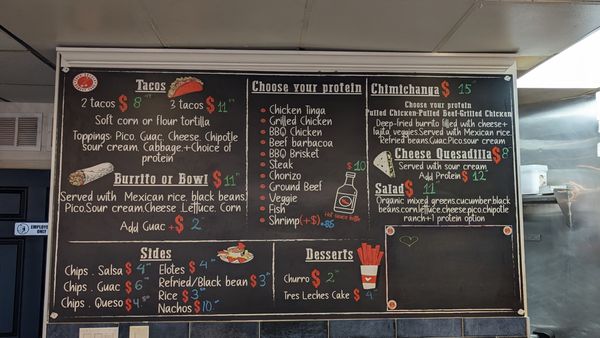 Tacos
2 tacos $8
3 tacos $11
Soft corn or flour tortilla
Toppings: Pico, Guac, Cheese, Chipotle
Sour cream, Cabbage,+Choice of
protein
Burrito or Bowl $11
Served with Mexican rice, black beans,
Pico,Sour cream,Cheese ,Lettuce, Corn
Add Guac +$2
Choose your protein
Chicken Tinga
Grilled Chicken
BBQ Chicken
Beef barbacoa
BBQ Brisket
Steak
Chorizo
Ground Beef
Veggie
Fish
Shrimp(+$)
$10
hot sauce bottle
Chimichanga $15
Choose your protein
Pulled Chicken-Pulled Beef-Grilled Chicken
Deep-fried burrito filled with cheese+
fajita veggies.Served with Mexican rice,
Refried beans,Guac,Pico,Sour cream
Cheese Quesadilla $8
Served with sour cream
Add Protein $12
Salad $11
Organic mixed greens,cucumber,black
beans,corn,lettuce,cheese,pico,chipotle
ranch+1 protein option
Sides
Chips , Salsa $4
Chips , Guac $6
Chips , Queso $4
Elotes $4
Refried/Black bean $3
Rice $3
Nachos $10
Desserts
Churro $2
Tres Leches Cake $4
EMPLOYEE
ONLY